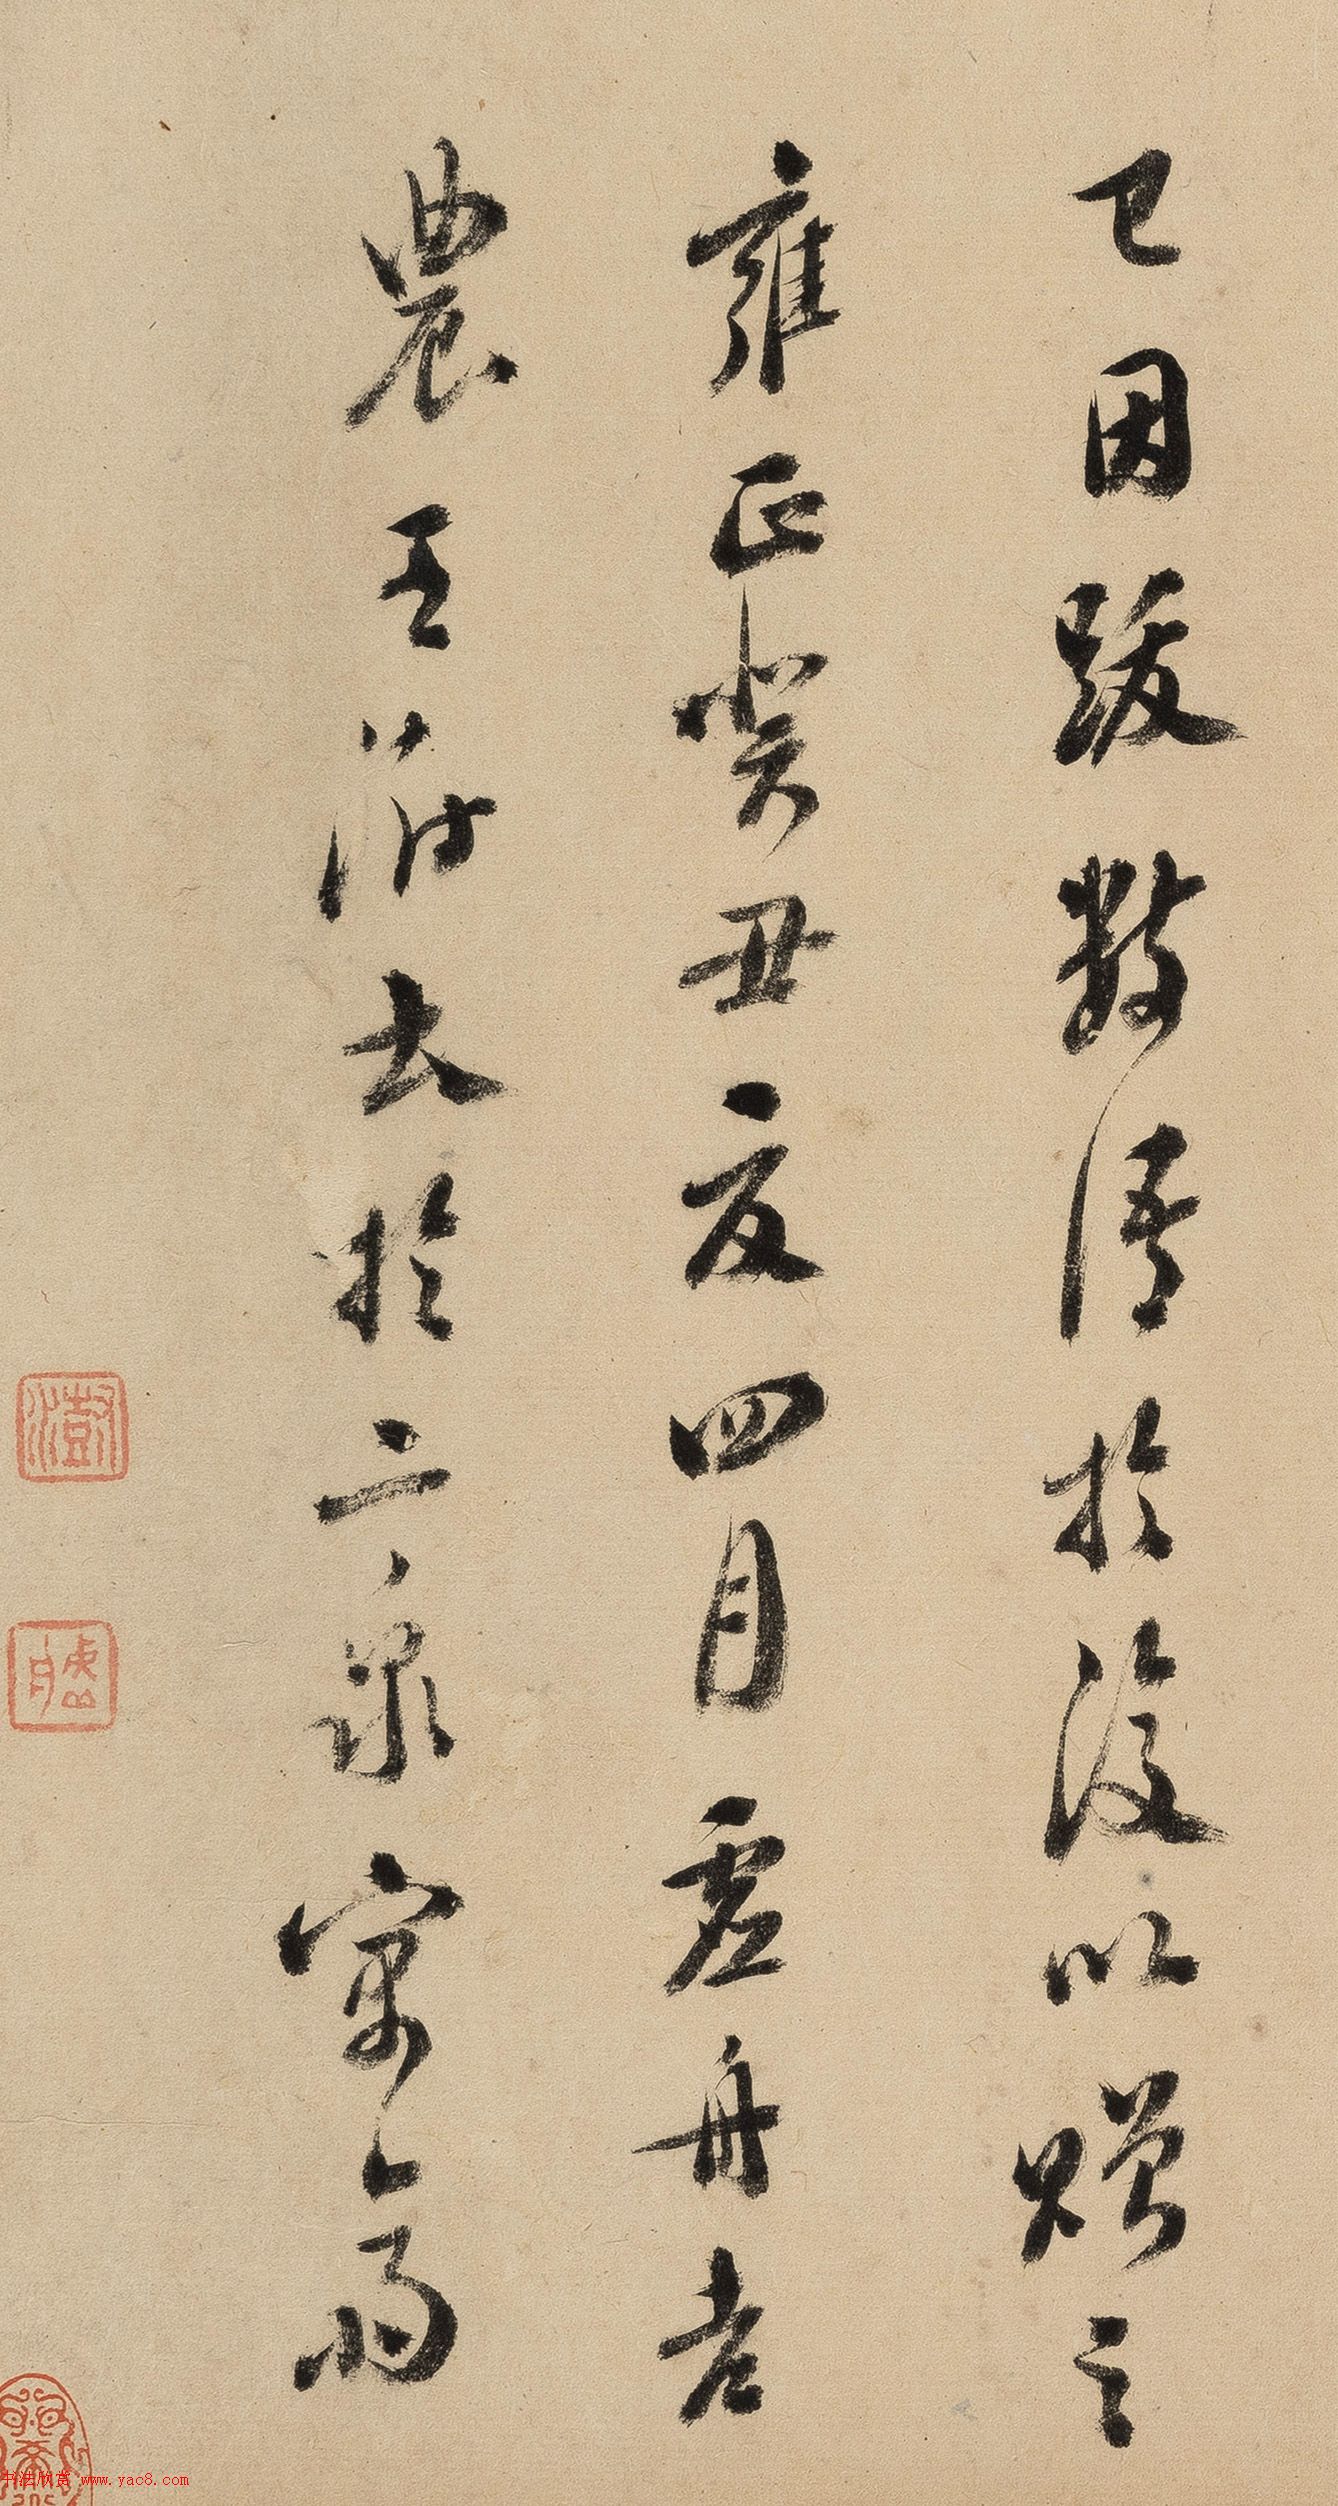 已因跋數语於後以贈之
雍正癸丑夏四月虛舟老
農王澍書於二泉寓齋
澂
虛舟
书法欣赏 www.yac8.com